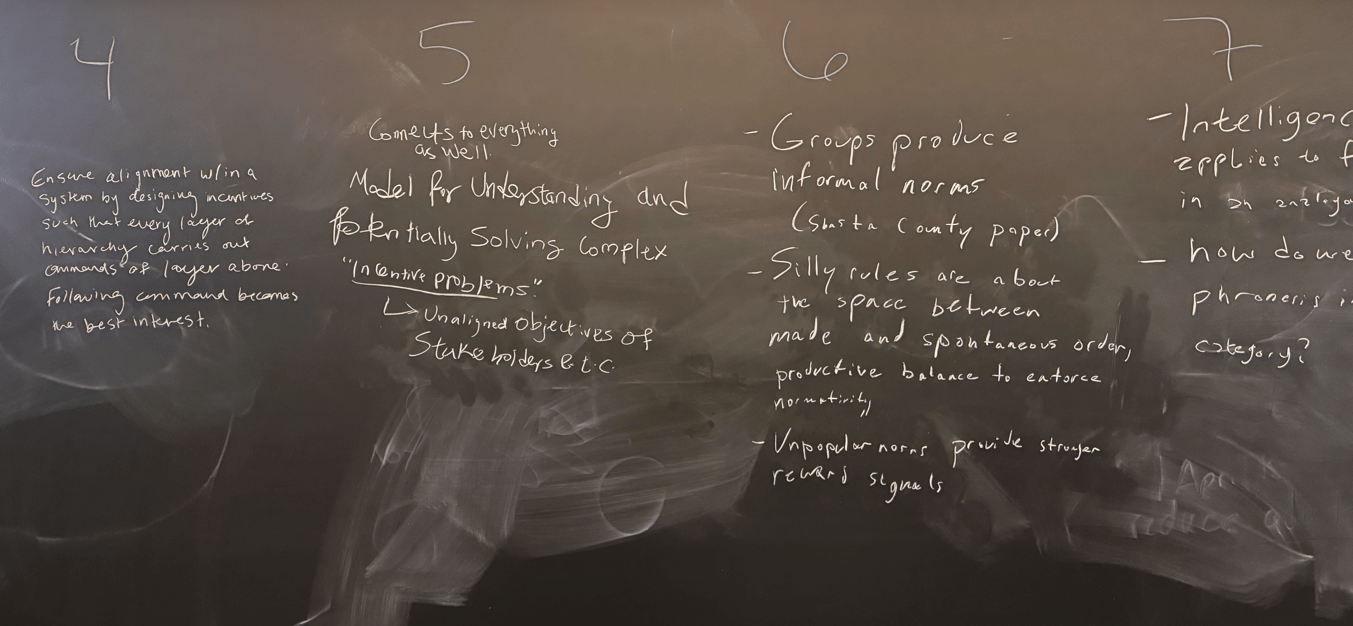 4
Ensure alignment w/in a
system by designing incentives
such that every layer of
hierarchy carries out
commands of layer above.
Following command becomes
the best interest.
5
Connects to everything
as well.
Model for Understanding and
Potentially Solving Complex
"Incentive problems."
↳ Unaligned objectives of
Stakeholders E.T.C.
6
- Groups produce
informal norms
(Shasta County paper)
- Silly rules are about
the space between
made and spontaneous order,
productive balance to enforce
normativity
- Unpopular norms provide stronger
reward signals
7
- Intelligenc
applies to f
in an analogo
- how do we
phronesis i
category?